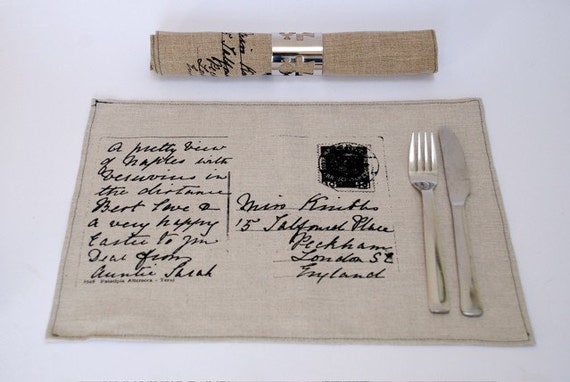 A pretty view
of Naples with
Vesuvius in
the distance
Best Love &
a very happy
Easter to you
Dear from
Auntie Sarah
Miss Knibbs
15 Talfourd Place
Peckham
London SE
England